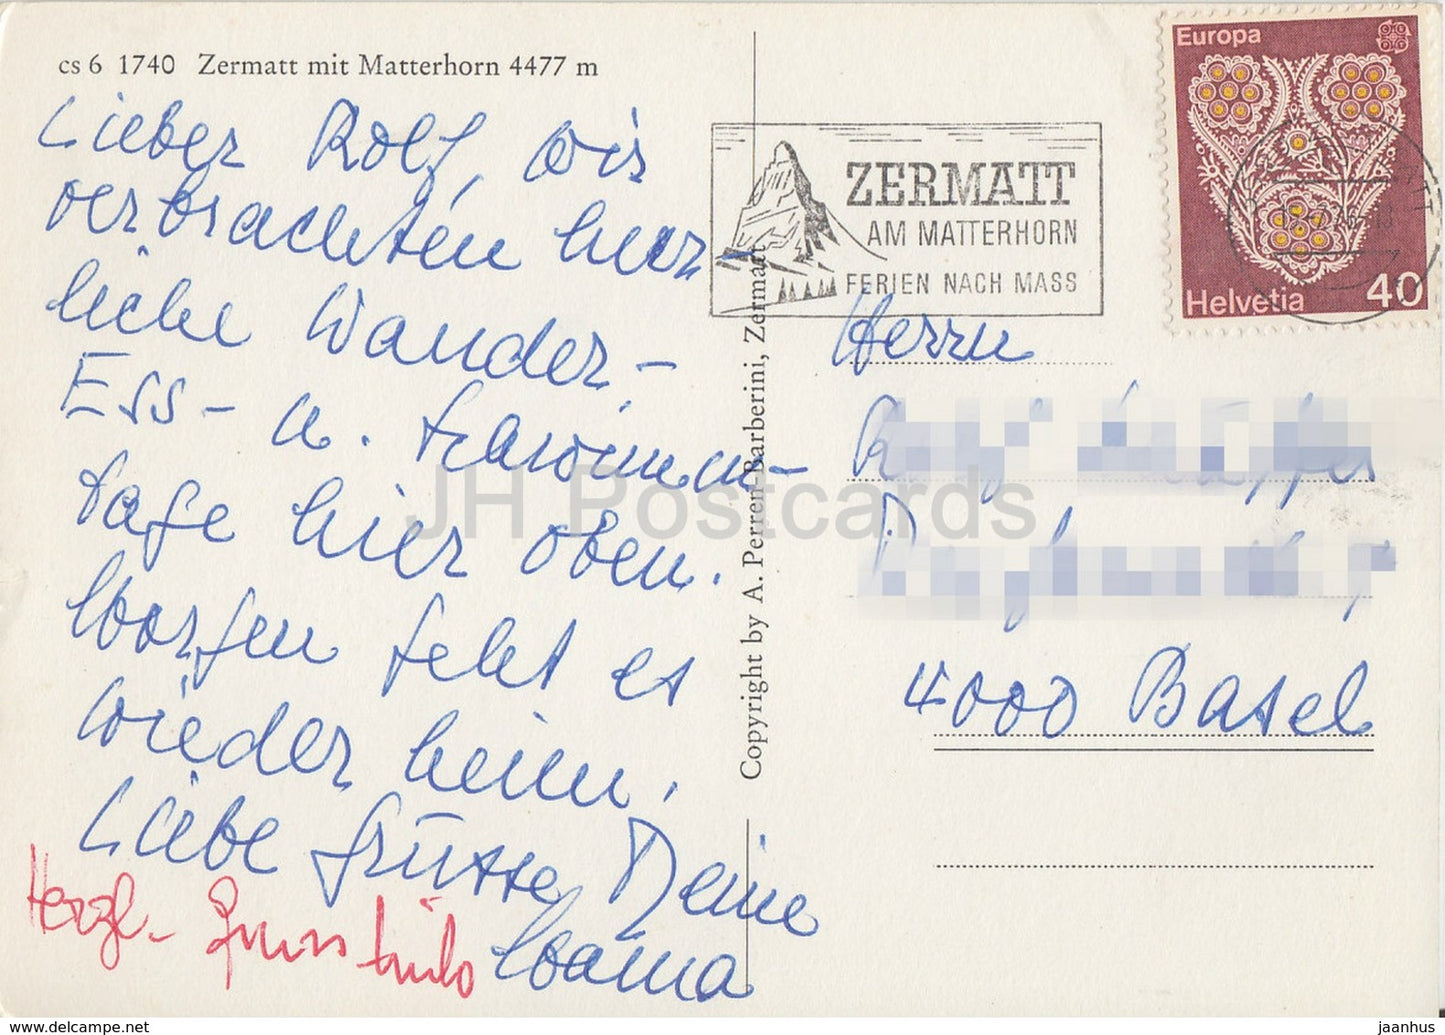 cs 6 1740 Zermatt mit Matterhorn 4477 m
Lieber Rolf, wir
verbrachten herz
liche Wander-,
Ess- u. Schwimm-
tage hier oben.
Morgen geht es
wieder heim.
Liebe Grüsse, Deine
Mama
Herzl. Gruss
Copyright by A. Perren-Barberini, Zermatt
ZERMATT
AM MATTERHORN
FERIEN NACH MASS
Europa
Helvetia 40
Herrn
4000 Basel
JH Postcards
hip-postcard.com
jaanhus